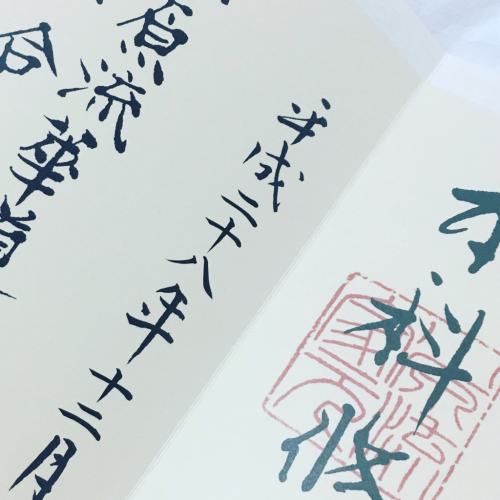 科修
平成二十八年十二月
原流華道